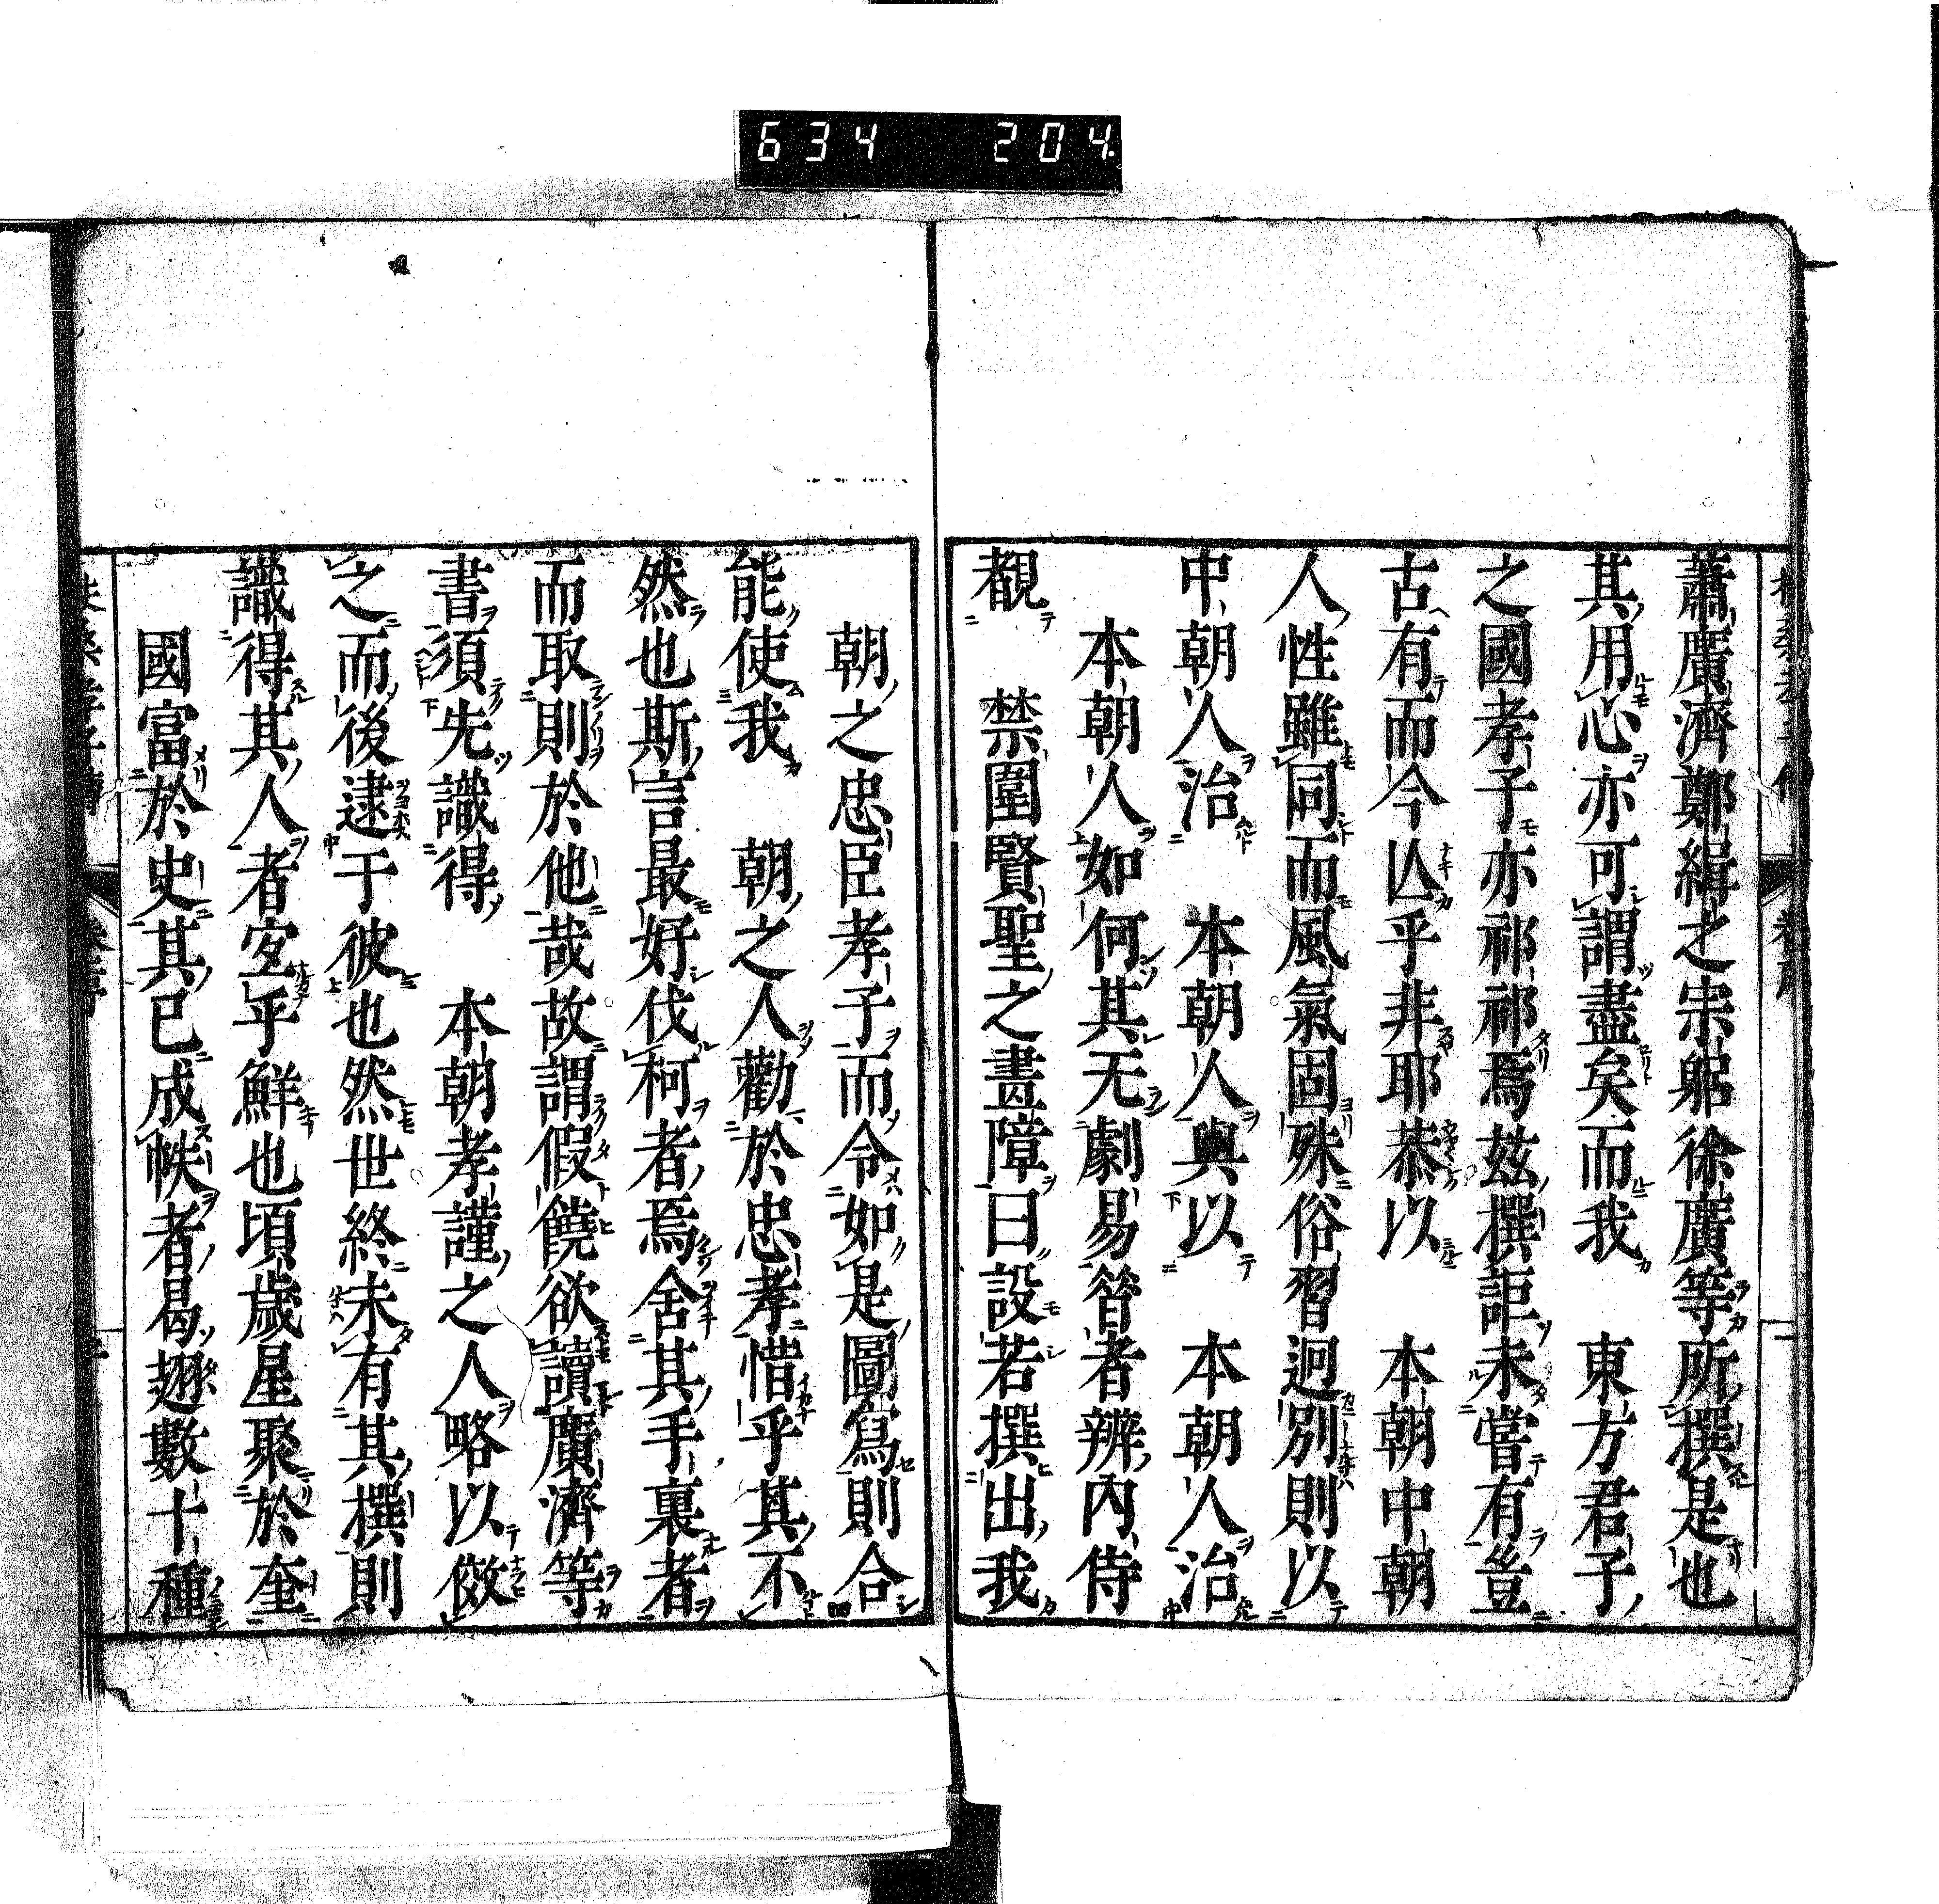 634 204.
蕭廣濟鄭緝之宗躬徐廣等所撰是也
其用心亦可謂盡矣而我 東方君子
之國孝子亦祁祁焉茲撰詎未嘗有豈
古有而今亾乎非耶恭以 本朝中朝
人性雖同而風氣固殊俗習迥別則以
中朝人治 本朝人與以 本朝人治
本朝人如何其无劇易笤者辨內侍
覩 禁圍賢聖之畫障曰設若撰出我
朝之忠臣孝子而令如是圖寫則合
能使我 朝之人勸於忠孝惜乎其不
然也斯言最好伐柯者焉舍其手裏者
而取則於他哉故謂假饒欲讀廣濟等
書須先識得 本朝孝謹之人略以傚
之而後逮于彼也然世終未有其撰則
識得其人者安乎鮮也頃歲星聚於奎
國富於史其已成帙者曷翅數十種